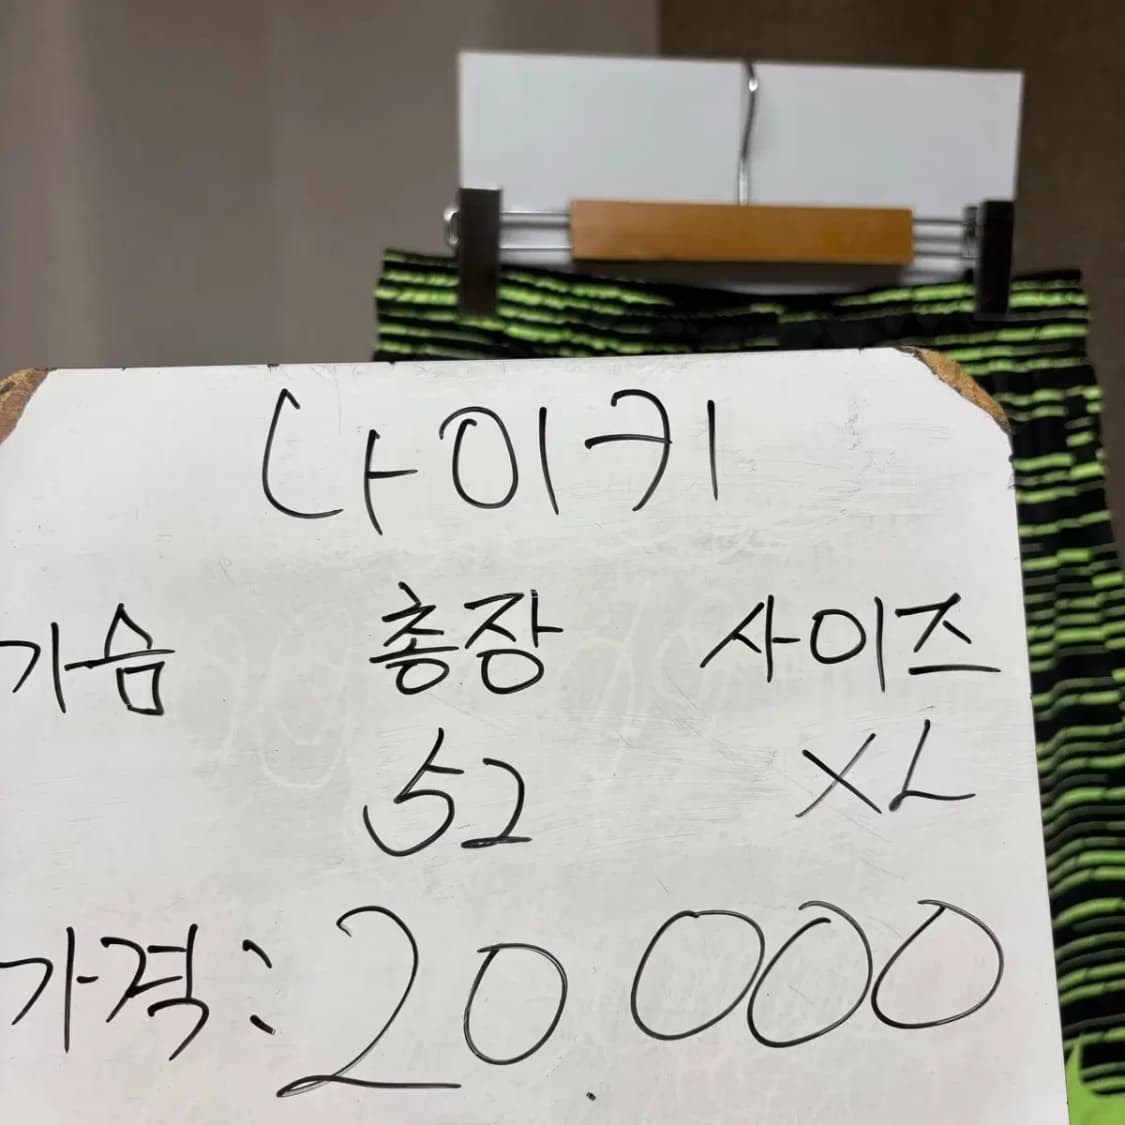 나이키
가슴 총장 사이즈
52 XL
가격: 20.000